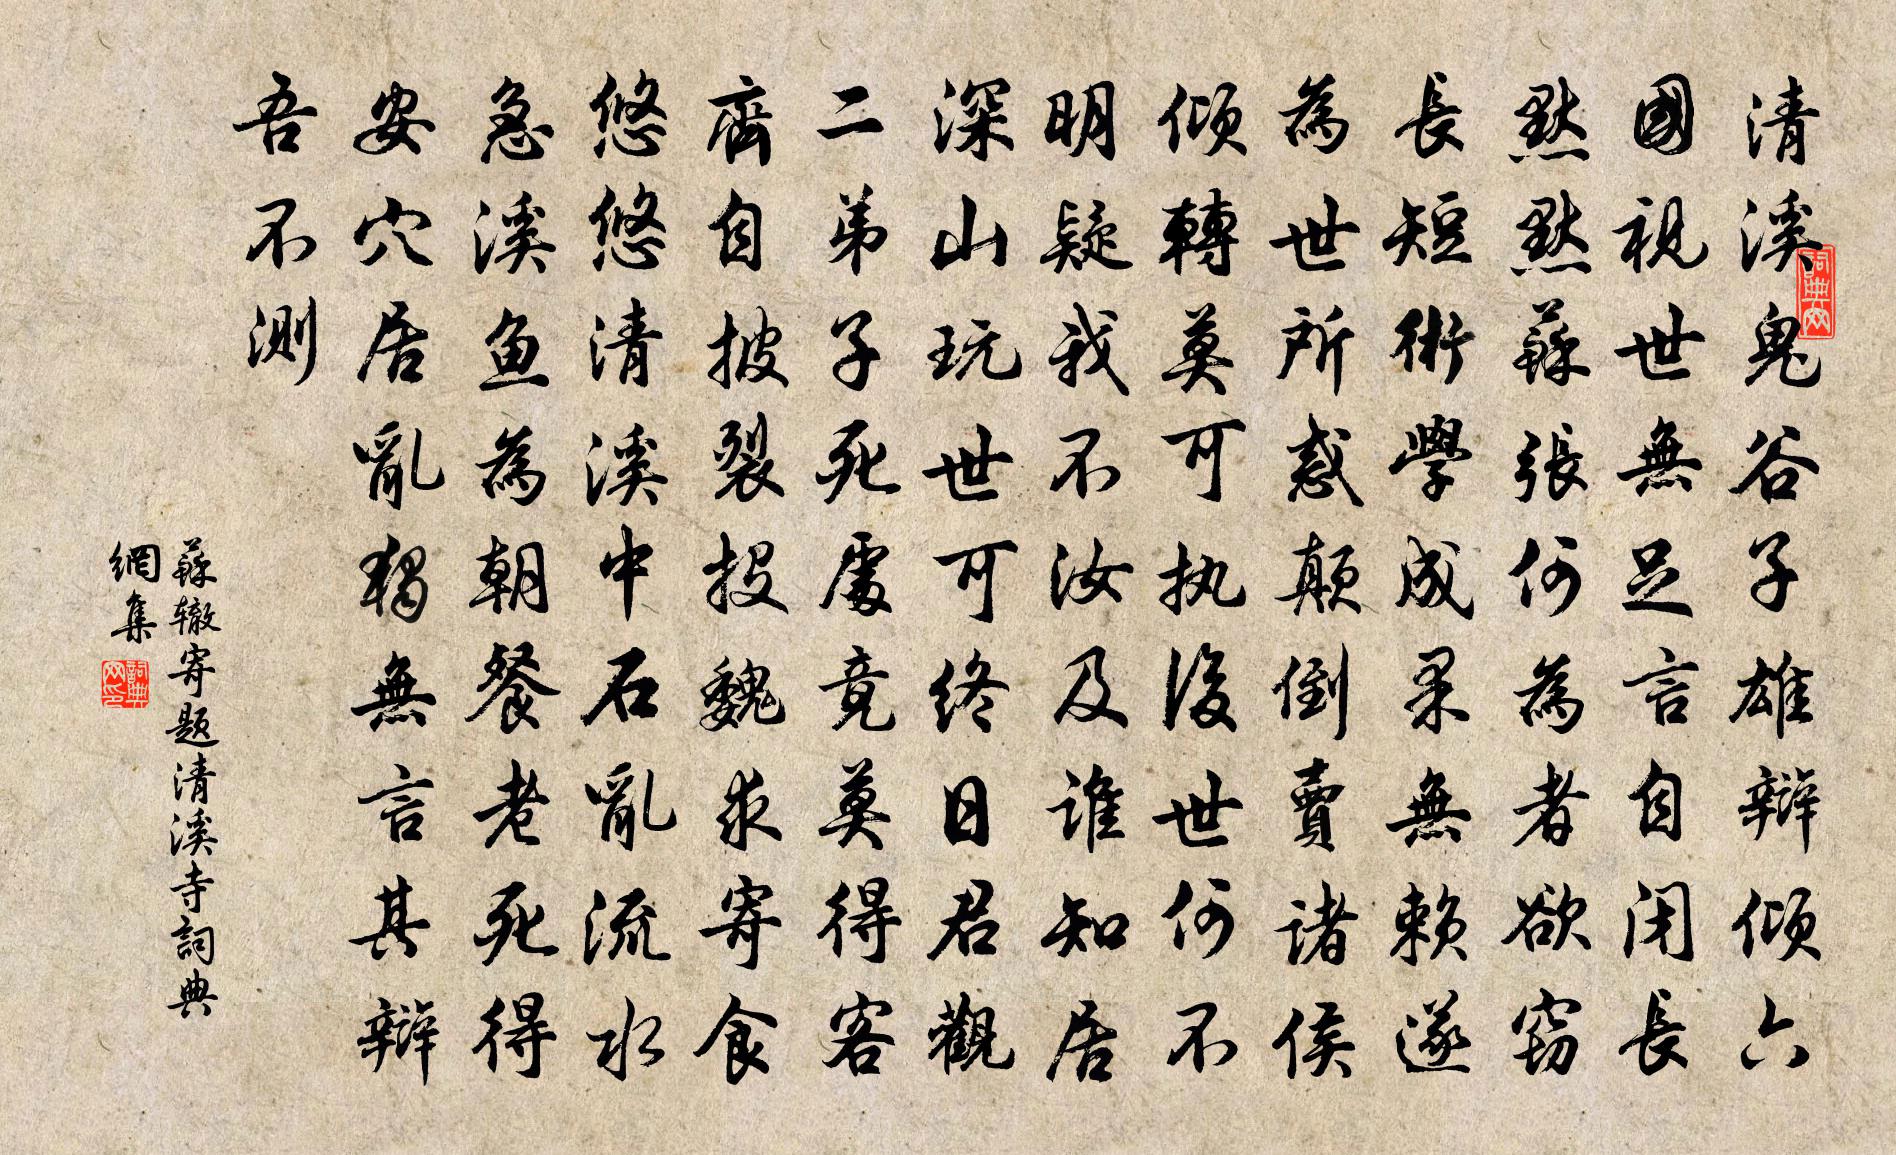 清溪鬼谷子雄辯傾六
國視世無足言自閉長
默默蘇張何為者欲竊
長短術學成果無賴遂
為世所惑顛倒賣諸侯
傾轉莫可执後世何不
明疑我不汝及谁知居
深山玩世可终日君觀
二弟子死處竟莫得客
齊自披裂投魏求寄食
悠悠清溪中石亂流水
急溪魚為朝餐老死得
安穴居亂獨無言其辯
吾不測
蘇辙寄题清溪寺詞典
網集
詞典网
詞典网印